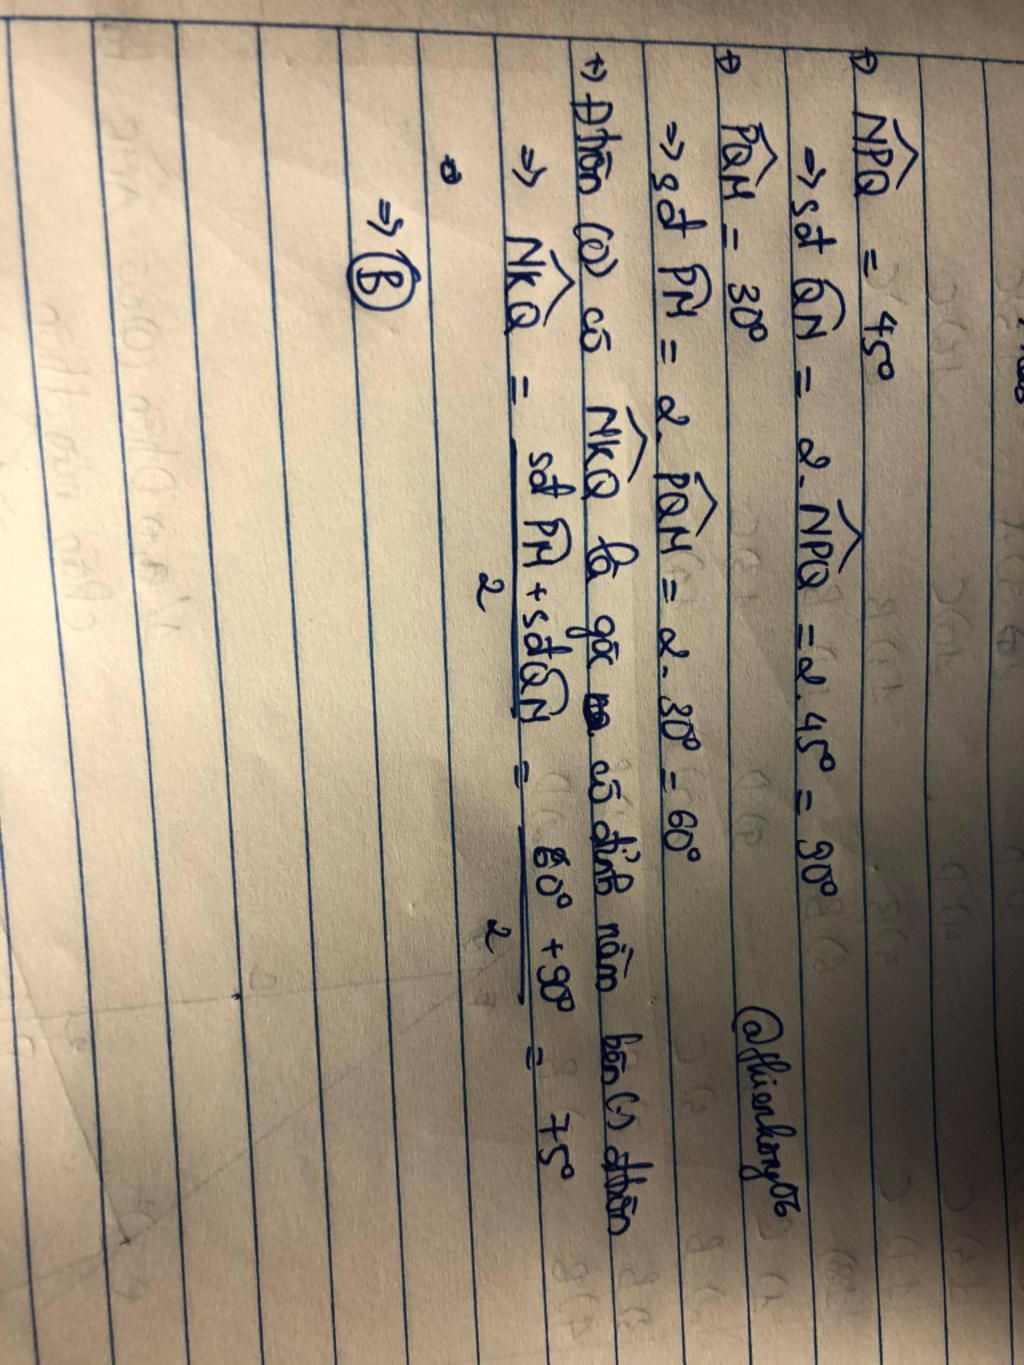 +) NPQ = 45°
=> sđ QN = 2. NPQ = 2. 45° = 90°
+) PQM = 30°
@thienhong06
=> sđ PM = 2. PQM = 2. 30° = 60°
+) Đtròn (O) có NKQ là góc có đỉnh nằm bên (.) đtròn
=> NKQ = sđ PM + sđ QN / 2 = 60° + 90° / 2 = 75°
=> B